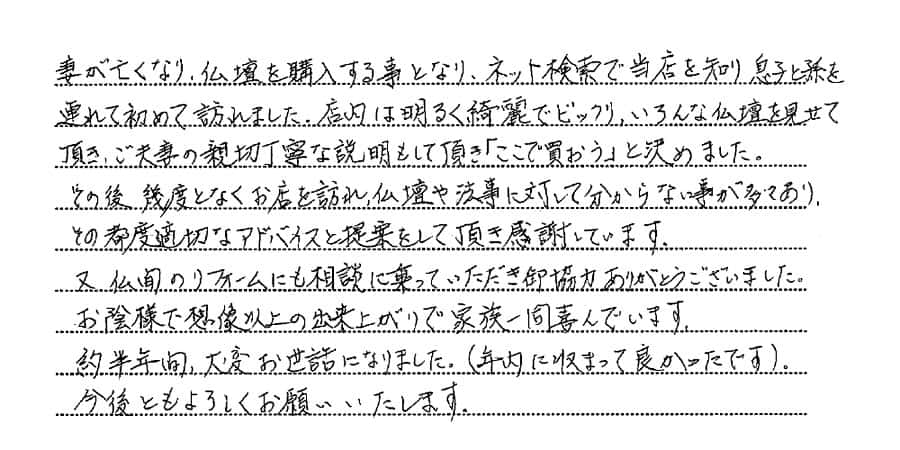 妻が亡くなり、仏壇を購入する事となり、ネット検索で当店を知り息子と孫を
連れて初めて訪れました。店内は明るく綺麗でビックリ、いろんな仏壇を見せて
頂き、ご夫妻の親切丁寧な説明もして頂き「ここで買おう」と決めました。
その後、幾度となくお店を訪れ、仏壇や法事に対して分からない事が多々あり、
その都度適切なアドバイスと提案をして頂き感謝しています。
又、仏間のリフォームにも相談に乗っていただき御協力ありがとうございました。
お陰様で想像以上の出来上がりで家族一同喜んでいます。
約半年間、大変お世話になりました。(年内に収まって良かったです)。
今後ともよろしくお願いいたします。